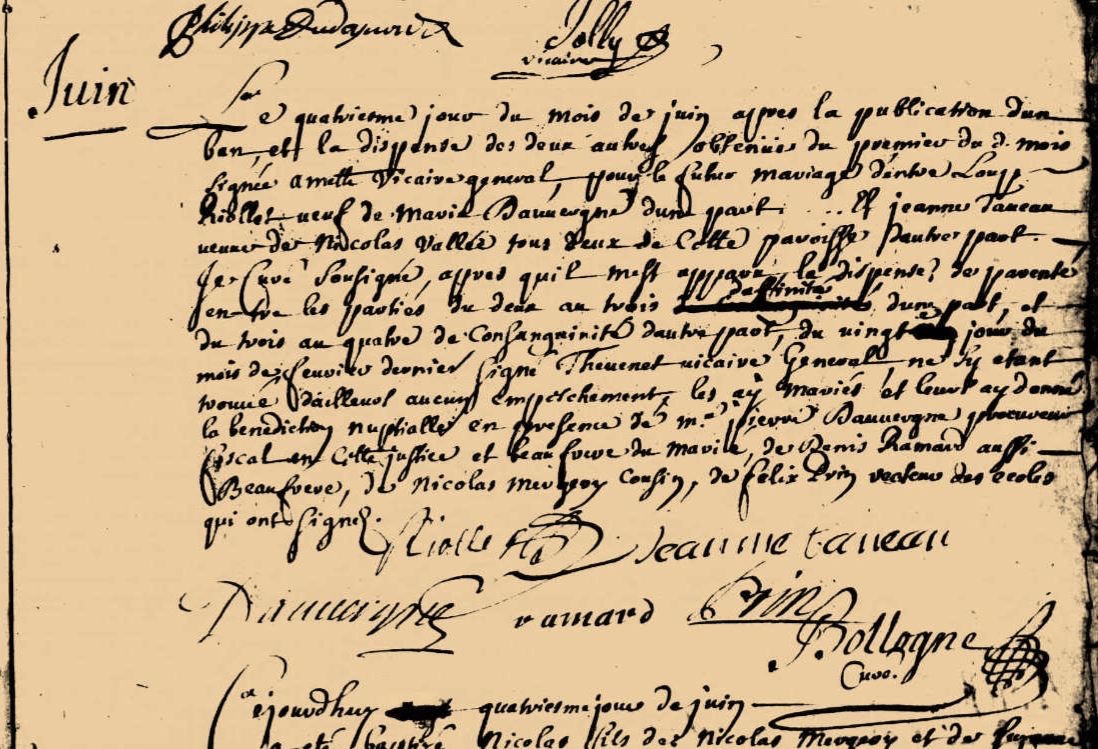 Jolly
vicaire
Juin
Le quatriesme jour du mois de juin appres la publication dun
ban, et la dispense des deux autres obtenüe du premier du d. mois
signée vicaire general, pour le futur mariage dentre Loup
Riollet veuf de Marie Dauvergne dune part .. Et jeanne Taneau
veuve de Nicolas Vallée tous deux de Cette paroisse dautre part.
Je Curé Sousigné, appres quil mest apparu la dispense de parenté
entre les parties du deux au trois daffinité dune part, et
du trois au quatre de Consanguinité dautre part, du vingt jour du
mois de feuvrier dernier signé Thevenot vicaire General, ne sy etant
trouvé dailleurs aucun empeschement, les ay Mariés et leurs ay donné
la benediction nuptialle en presence de mre pierre Dauvergne procureur
fiscal en Cette justice et beaufrere du Marié, de Denis Ramard aussi
Beaufrere, de Nicolas Mergey Cousin, de felix Prin recteur des écoles
qui ont signé.
Riollet Jeanne taneau
Dauvergne ramard Prin
Bollogne
Curé.
Cejourdhuy quatriesme jour de juin
a esté baptizé Nicolas fils de Nicolas Mergey et de